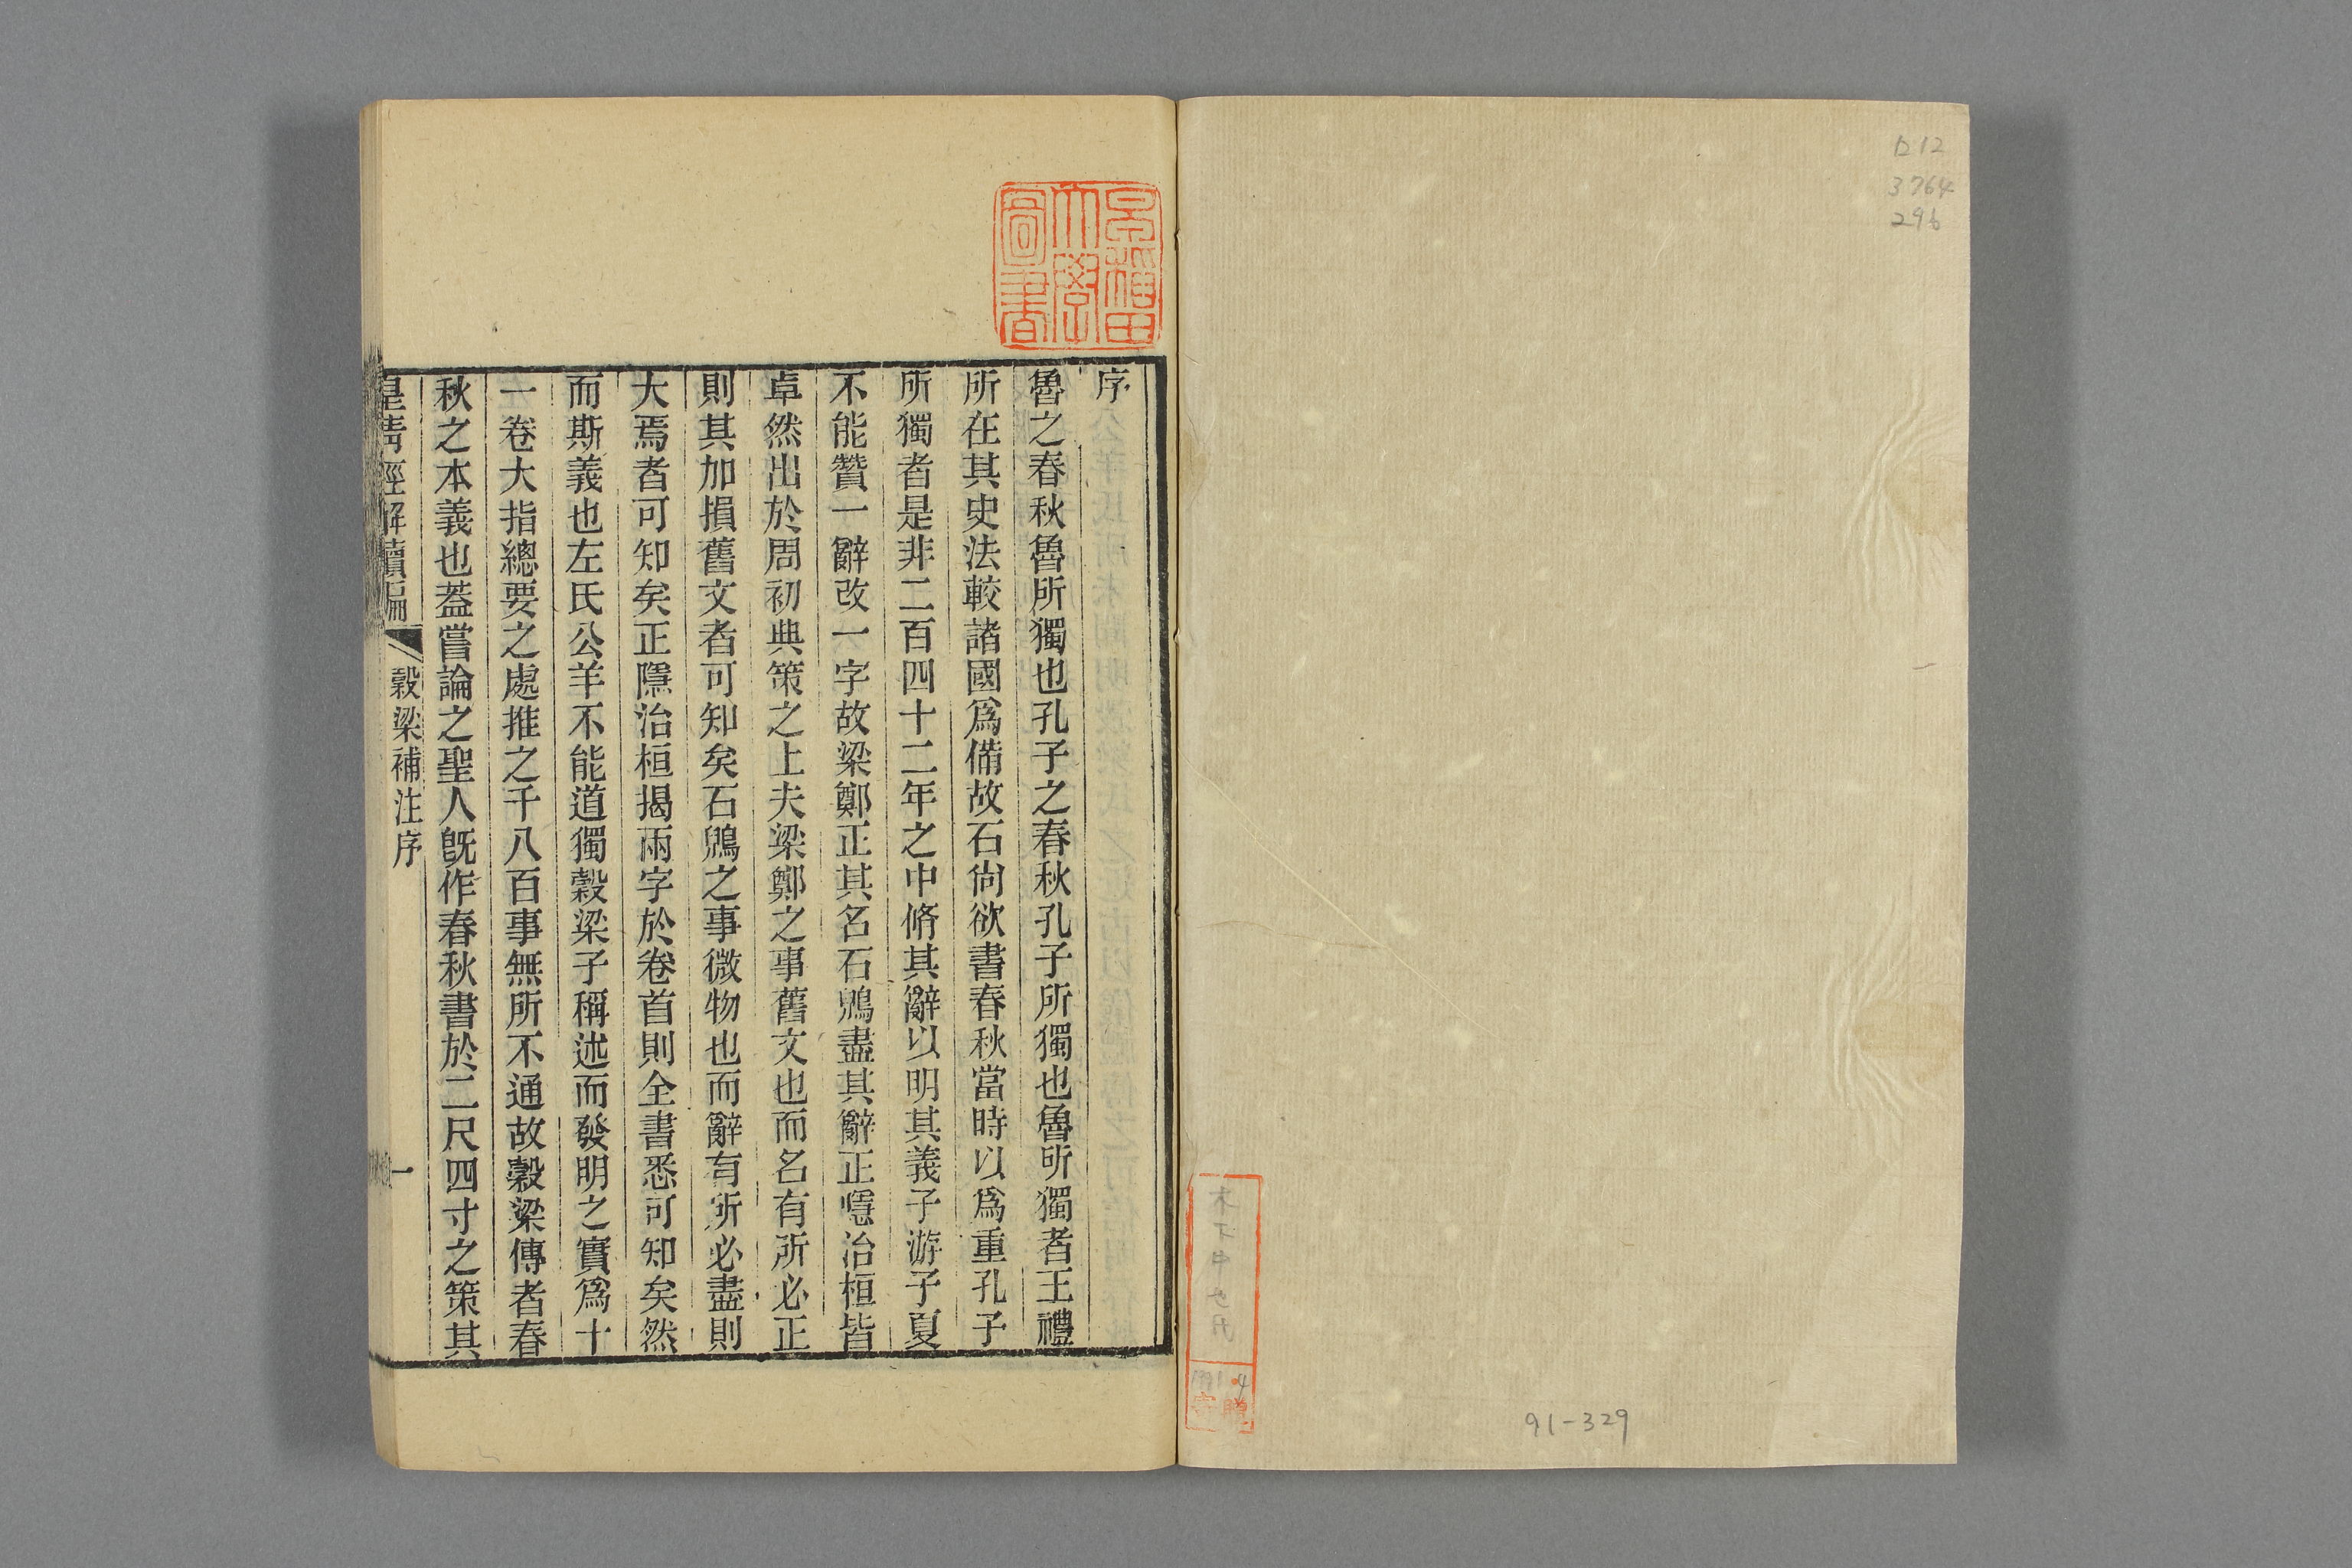 D12
3764
296
91-329
早稲田
大學
圖書
序
魯之春秋魯所獨也孔子之春秋孔子所獨也魯所獨者王禮
所在其史法較諸國爲備故石尙欲書春秋當時以爲重孔子
所獨者是非二百四十二年之中脩其辭以明其義子游子夏
不能贊一辭改一字故梁鄭正其名石鷁盡其辭正隱治桓皆
卓然出於周初典策之上夫梁鄭之事舊文也而名有所必正
則其加損舊文者可知矣石鷁之事微物也而辭有所必盡則
大焉者可知矣正隱治桓揭兩字於卷首則全書悉可知矣然
而斯義也左氏公羊不能道獨穀梁子稱述而發明之實爲十
一卷大指總要之處推之千八百事無所不通故穀梁傳者春
秋之本義也葢嘗論之聖人旣作春秋書於二尺四寸之策其
皇淸經解續編
穀梁補注序
一